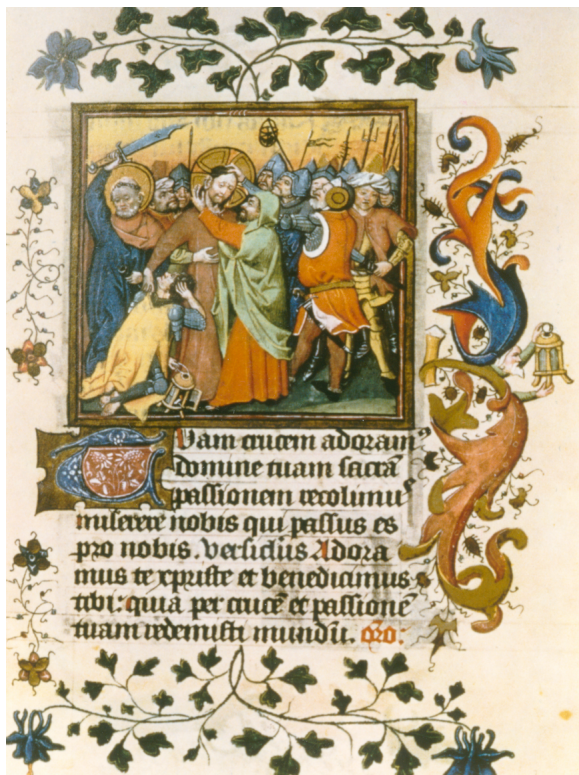 Tuam crucem adoram⁹
domine tuam sacrā
passionem recolimu⁹
miserere nobis qui passus es
pro nobis. Versiclus Adora
mus te xpriste et benedicimus
tibi. quia per crucē et passionē
tuam redemisti mundū. oro.